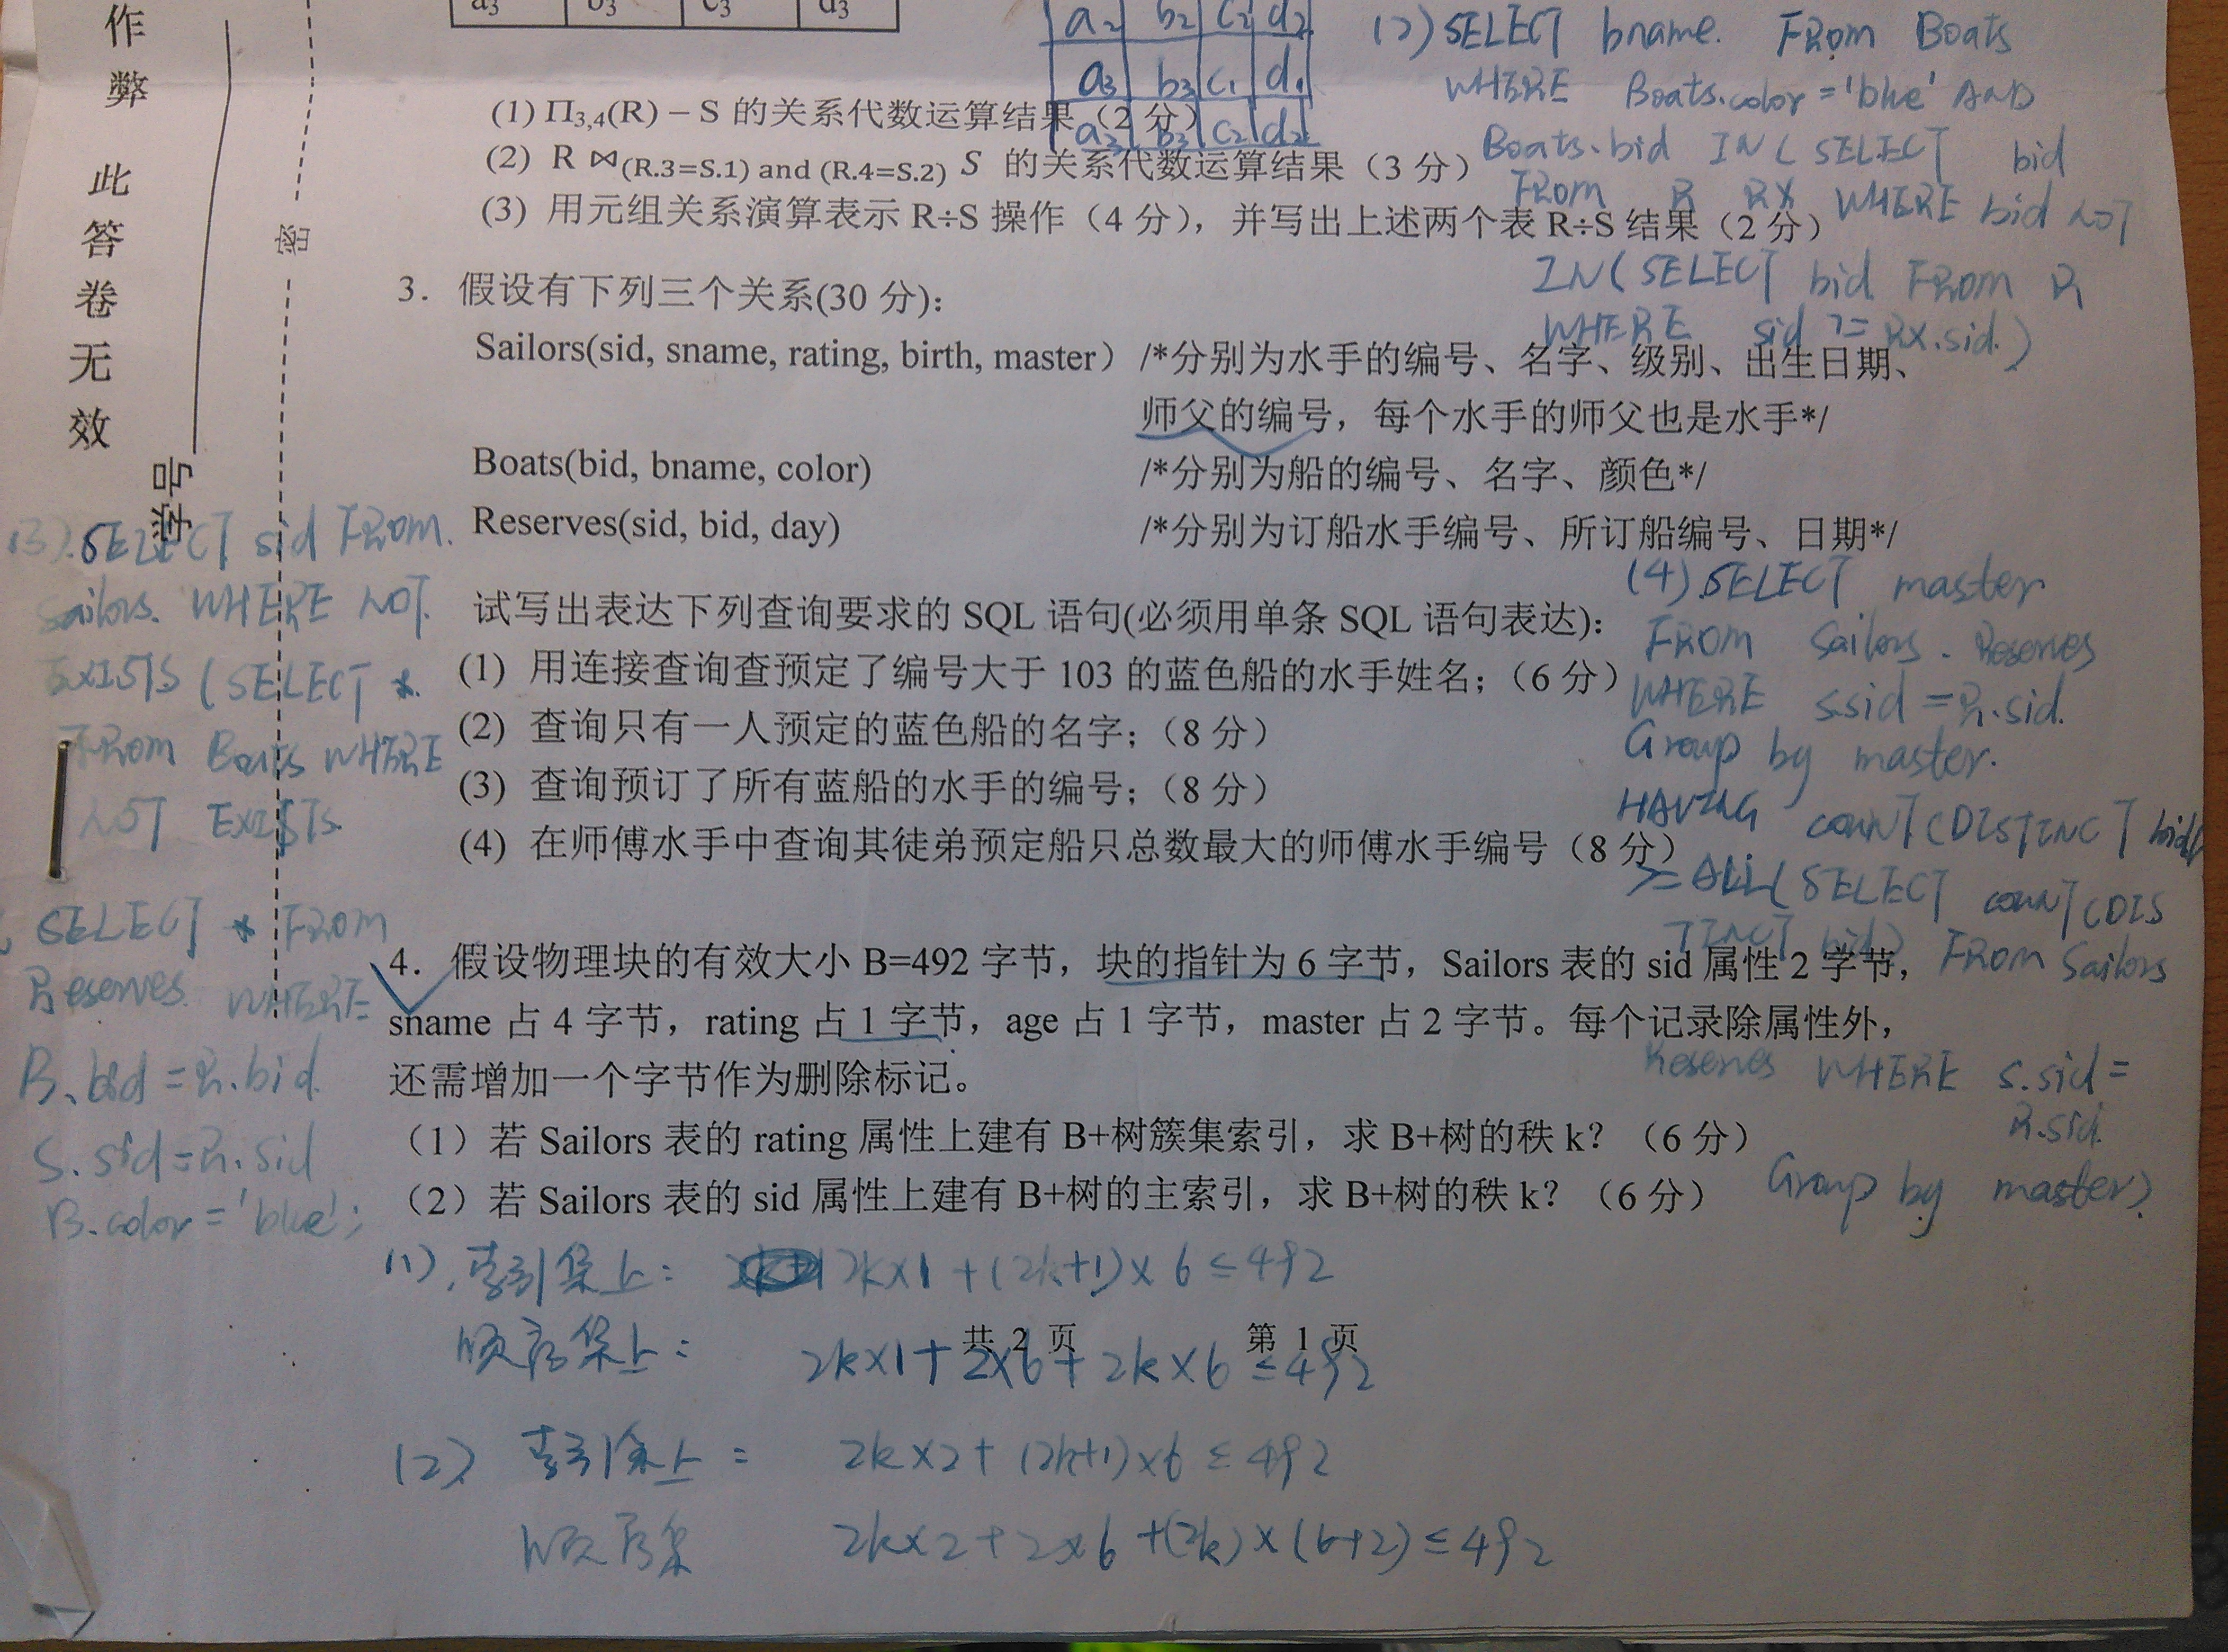 作
弊
此
答
卷
无
效
学号
密
a3 b3 c3 d3
a2 b2 c2 d2
a3 b3 c1 d1
a3 b3 c2 d2
(2) SELECT bname. FROM Boats
WHERE Boats.color='blue' AND
Boats.bid IN ( SELECT bid
FROM R RX WHERE bid NOT
IN ( SELECT bid FROM R
WHERE sid != RX.sid.)
(1) Π3,4(R) − S 的关系代数运算结果（2 分）
(2) R ⋈(R.3=S.1) and (R.4=S.2) S 的关系代数运算结果（3 分）
(3) 用元组关系演算表示 R÷S 操作（4 分），并写出上述两个表 R÷S 结果（2 分）
3. 假设有下列三个关系(30 分)：
Sailors(sid, sname, rating, birth, master） /*分别为水手的编号、名字、级别、出生日期、
师父的编号，每个水手的师父也是水手*/
Boats(bid, bname, color) /*分别为船的编号、名字、颜色*/
Reserves(sid, bid, day) /*分别为订船水手编号、所订船编号、日期*/
试写出表达下列查询要求的 SQL 语句(必须用单条 SQL 语句表达)：
(1) 用连接查询查预定了编号大于 103 的蓝色船的水手姓名；（6 分）
(2) 查询只有一人预定的蓝色船的名字；（8 分）
(3) 查询预订了所有蓝船的水手的编号；（8 分）
(4) 在师傅水手中查询其徒弟预定船只总数最大的师傅水手编号（8 分）
(3). SELECT sid FROM.
Sailors. WHERE NOT.
EXISTS ( SELECT *.
FROM Boats WHERE
NOT EXISTS.
SELECT * FROM
Reserves. WHERE
B.bid = R.bid.
S.sid = R.sid
B.color = 'blue';
(4) SELECT master
FROM Sailors. Reserves
WHERE s.sid = R.sid.
Group by master.
HAVING COUNT(DISTINCT bid)
>= ALL( SELECT COUNT(DIS
TINCT bid) FROM Sailors
Reserves WHERE S.sid =
R.sid.
Group by master).
4. 假设物理块的有效大小 B=492 字节，块的指针为 6 字节，Sailors 表的 sid 属性 2 字节，
sname 占 4 字节，rating 占 1 字节，age 占 1 字节，master 占 2 字节。每个记录除属性外，
还需增加一个字节作为删除标记。
（1）若 Sailors 表的 rating 属性上建有 B+树簇集索引，求 B+树的秩 k？（6 分）
（2）若 Sailors 表的 sid 属性上建有 B+树的主索引，求 B+树的秩 k？（6 分）
(1). 索引集上： 2k×1+(2k+1)×6≤492
顺序集上： 2k×1+2×6+2k×6≤492
共 2 页 第 1 页
(2) 索引集上： 2k×2+(2k+1)×6≤492
顺序集 2k×2+2×6+(2k)×(6+2)≤492